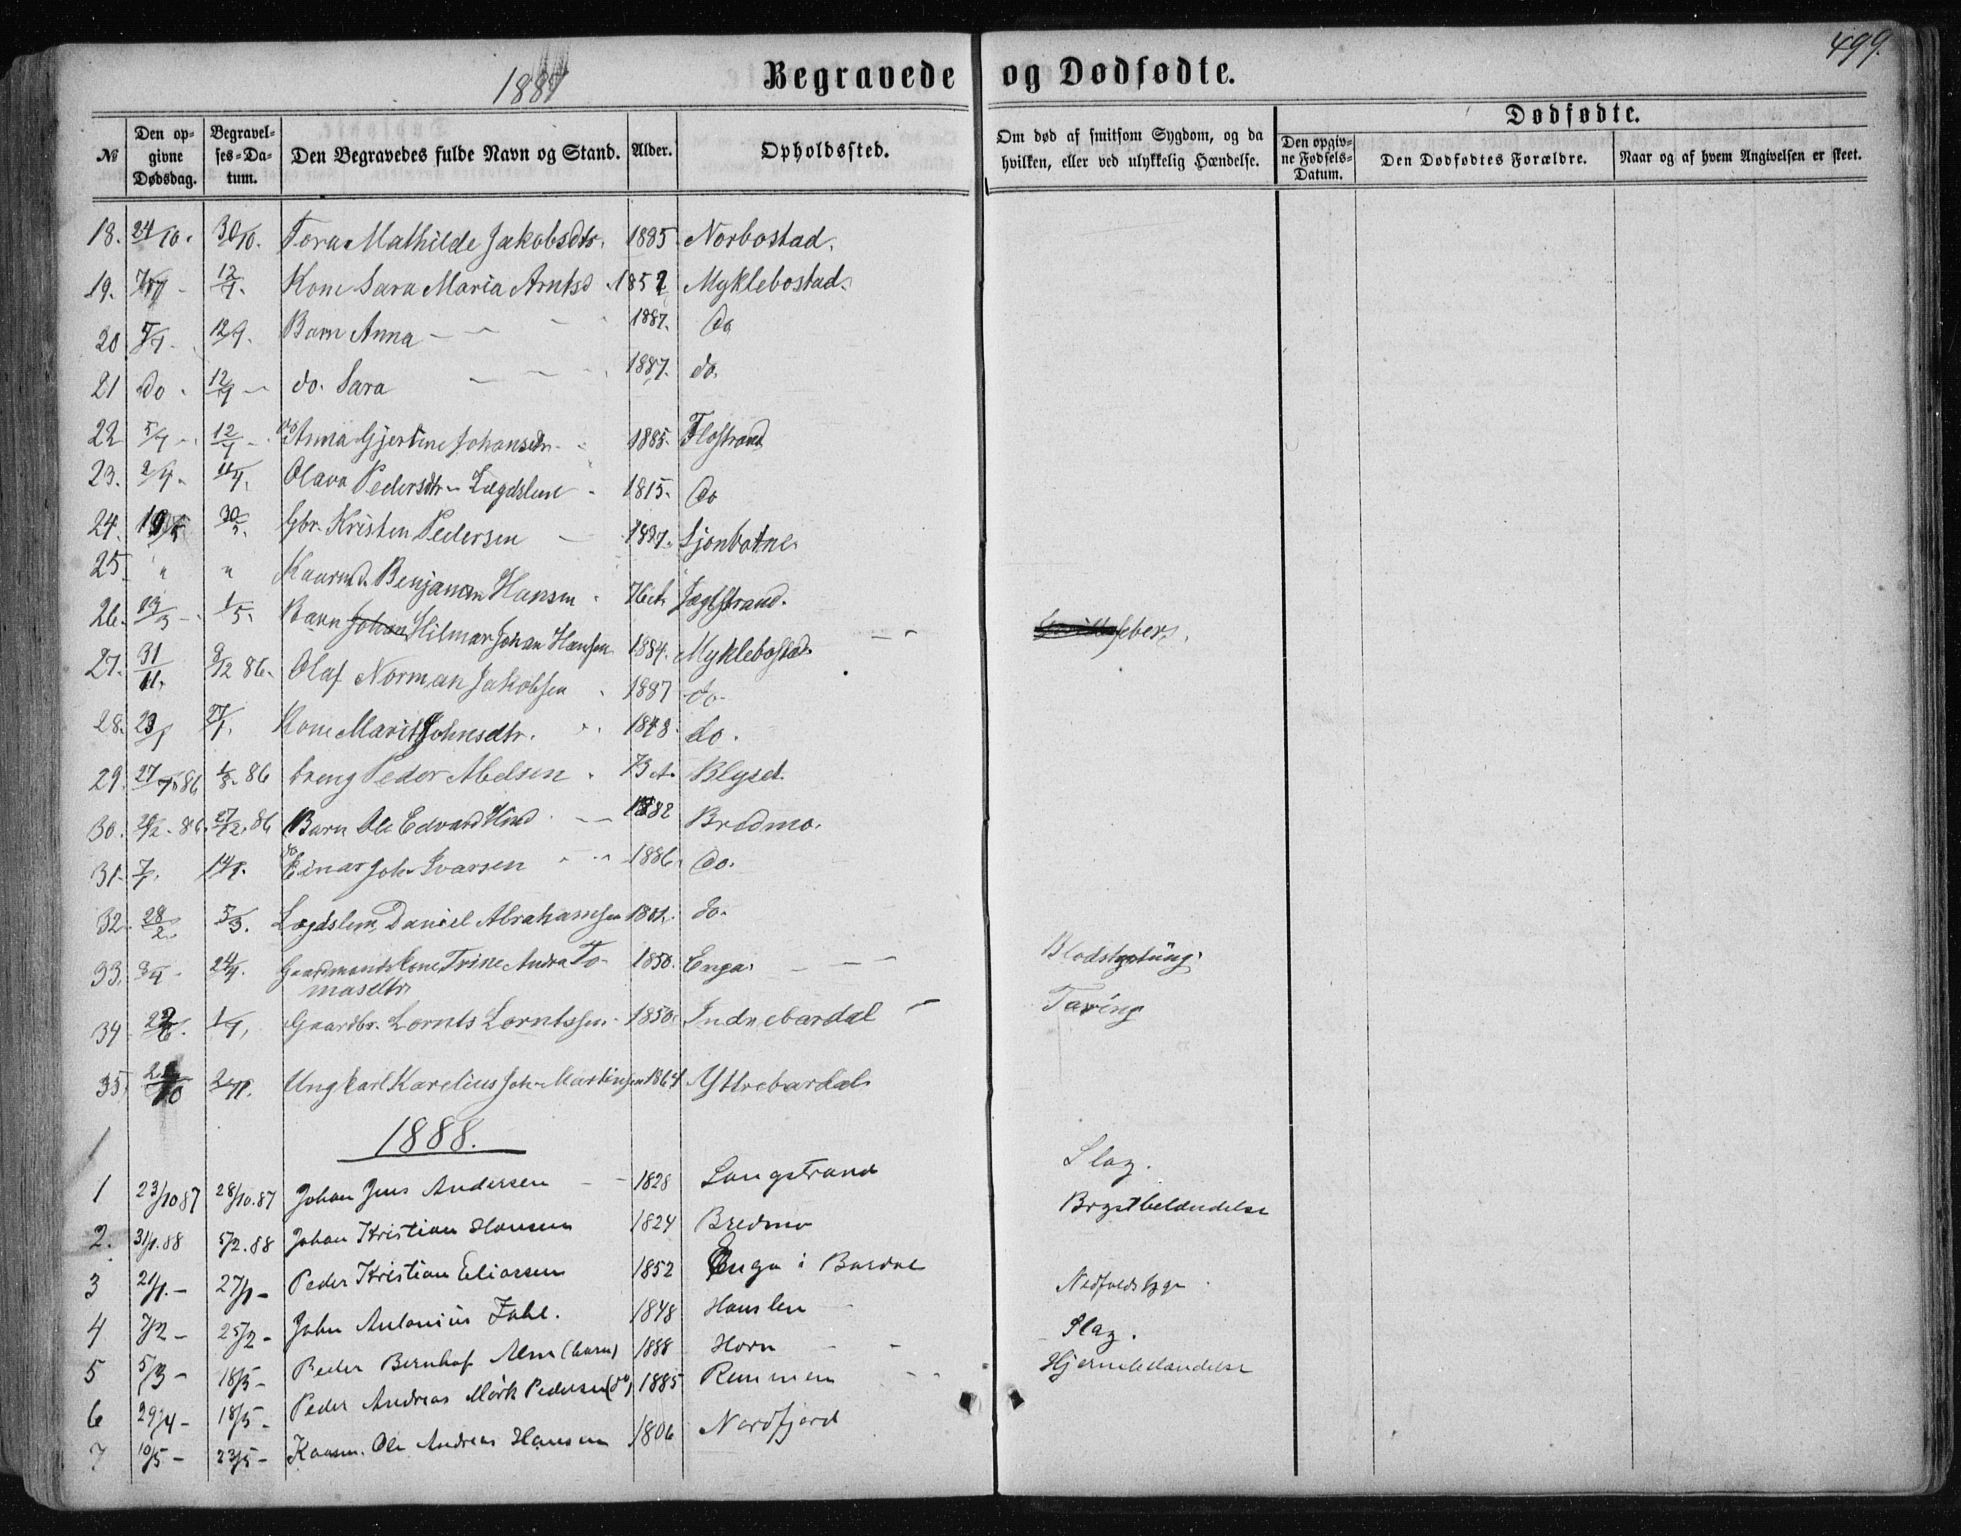 499.
1887
Begravede og Dødfødte.
№
Den opgivne Dødsdag.
Begravelses-Datum.
Den Begravedes fulde Navn og Stand.
Alder.
Opholdssted.
Om død af smitsom Sygdom, og da hvilken, eller ved ulykkelig Hændelse.
Dødfødte.
Den opgivne Fødsels-Datum.
Den Dødfødtes Forældre.
Naar og af hvem Angivelsen er skeet.
18. 24/10. 30/10. Tora Mathilde Jakobsdtr. 1885 Norbostad.
19. 12/9. Kone Sara Maria Arntsd. 1852 Myklebostad.
20 5/9. 12/9. Barn Anna 1887. do
21 do 12/9 do. Sara 1887. do.
22 5/9 12/9 do Anna Gjertine Johansdtr 1885. Flostrand
23. 2/9. 11/9. Olava Pedersdtr Lægdslem 1815. do
24. 30/5. Gbr. Kristen Pedersen 1837. Sjonbotne
25. " " Kaarmd. Benjamin Hansen 76 A. Jægtstrand.
26. 13/3 1/5. Barn Hilmar Johan Hansen 1884. Myklebostad feber.
27. 31/11. 9/12 86. Olaf Norman Jakobsen 1887 do
28. 23/1 27/1. Kone Marit Johnsdtr. 1848 do.
29. 27/ 86 1/8. 86 Peder Abelsen 73 A. Blyset.
30. 20/12. 86. 27/12. 86 Barn Ole Edvard Kind 1882 Bredmo.
31. 7/1. 14/1. do Einar Joh. Ivarsen 1886. do.
32 28/2 5/3. Lægdslem Daniel Abrahamsen 1801. do.
33. 24/9. Gaardmandskone Trine Andrea Tomasdtr. 1850. Enga. Blodstyrtning.
34 1/7. Gaardbr. Lornts Lorntssen 1850. Indrebardal Tæring
35. 2/11. Ungkarl Karelius Joh. Martinsen 1864 Yttrebardal
1888.
1
1 23/10 87 28/10. 87 Johan Jens Andersen 1828 Langstrand Slag.
2. 31/1. 88 5/2. 88 Johan Kristian Hansen 1824 Bredmo Brystbetændelse
3 21/1. – 27/1 – Peder Kristian Eliassen 1852 Enga i Bardal
4 7/2 – 25/2 – John Antonius Zahl. 1848 Hauslen Nedfaldssyge
5 5/3 – 18/5 – Peder Bernhof Alm (barn) 1888 Horn Slag.
6 29/4 – 18/5 – Peder Andreas Mørk Pedersen (do) 1885 Remmen Hjernebetændelse
7 10/5 – 23/5 – Kaarm. Ole Andreas Hansen 1806 Nordfjord